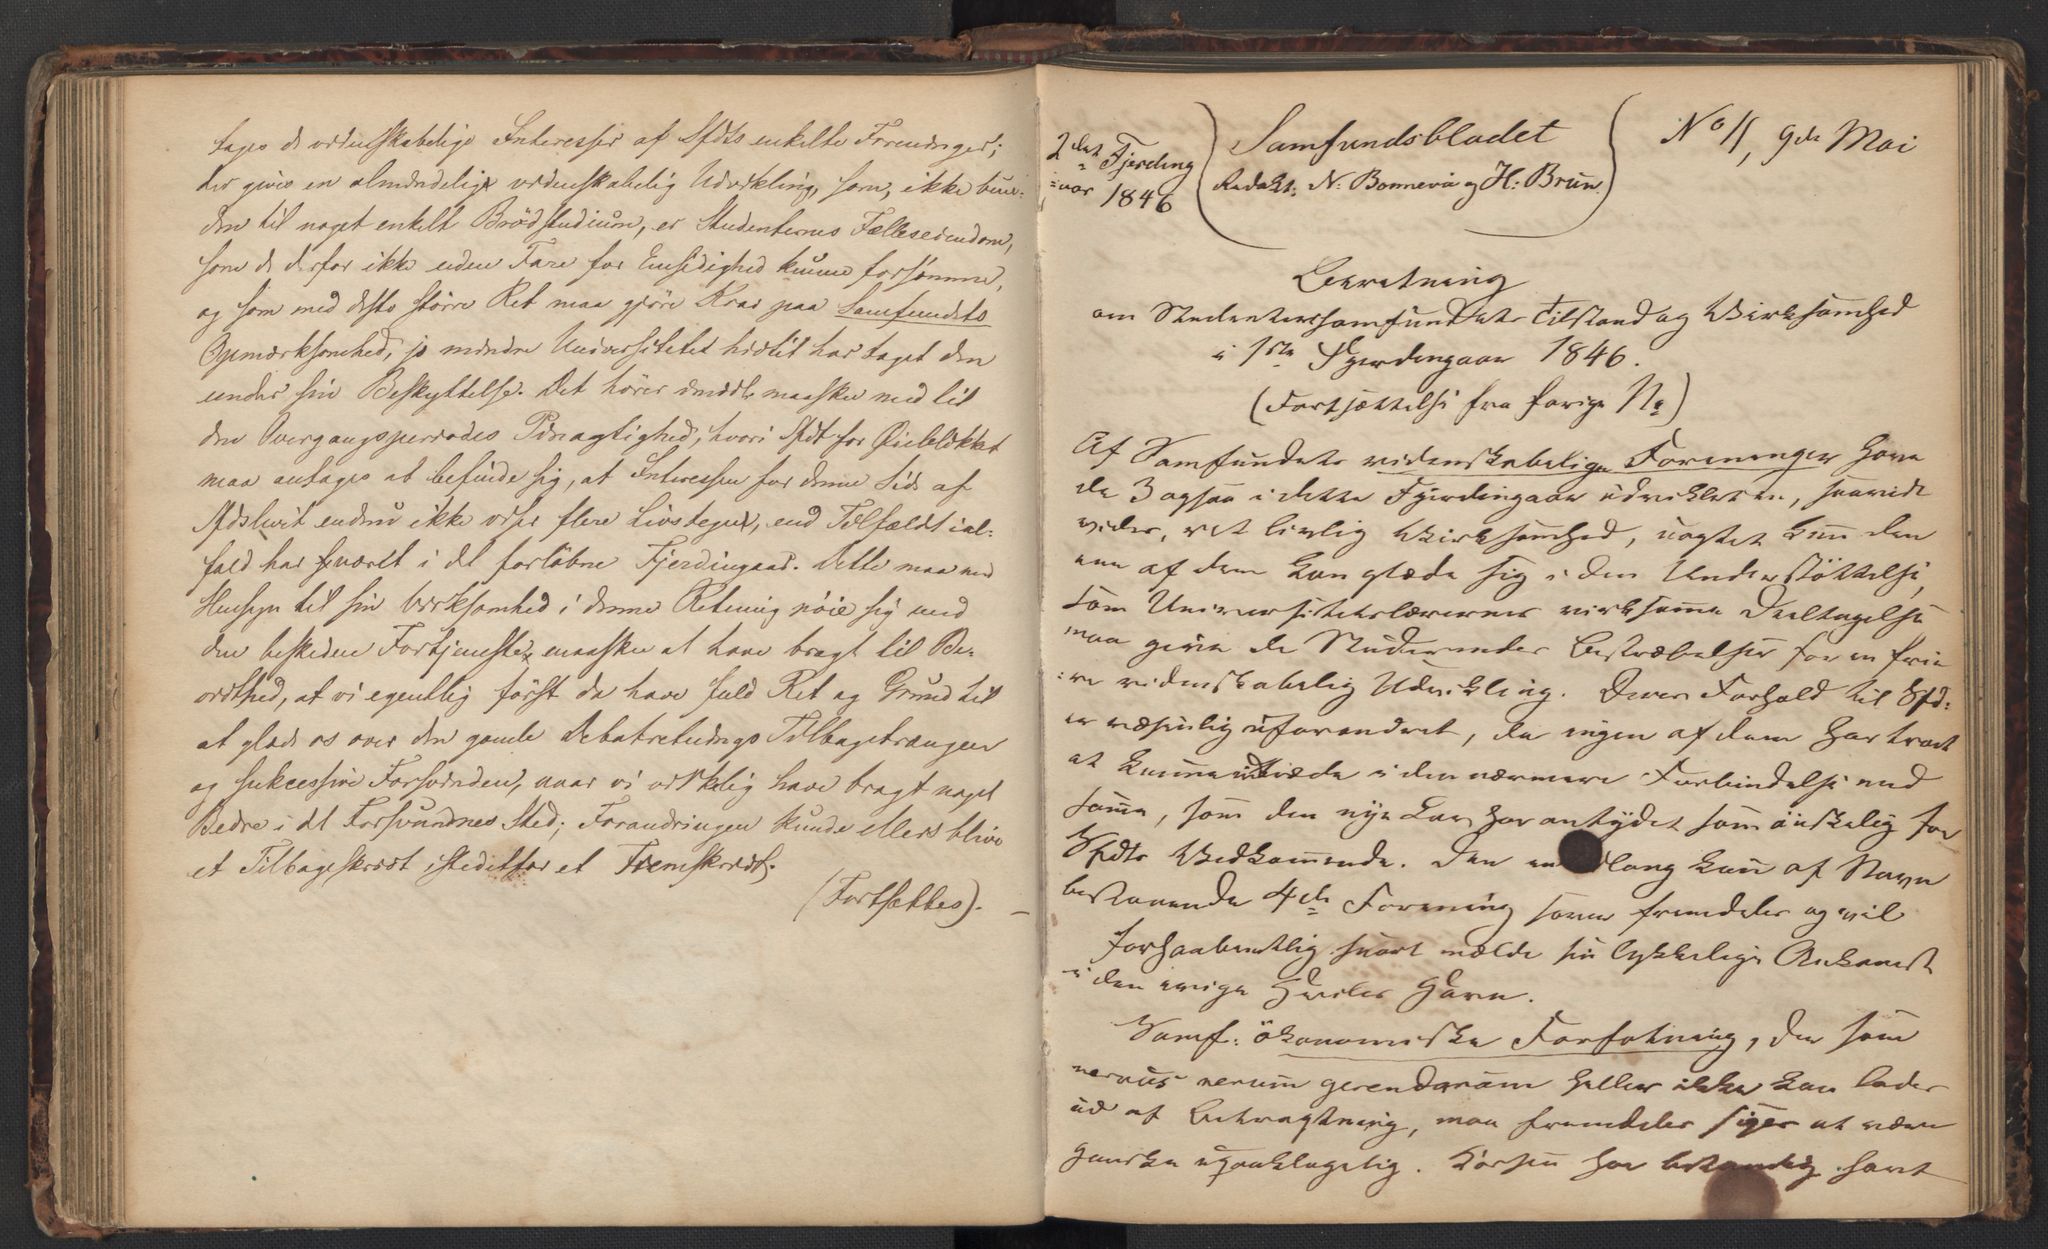 tages de videnskabelige Interesser af Sfdts enkelte Foreninger;
der gives en almindelig videnskabelig Udvikling, som, ikke bun-
den til noget enkelt Brødstudium, er Studenternes Fælleseiendom,
som de derfor ikke uden Fare for Eensidighed kunne forsømme,
og som med desto større Ret maa gjøre Krav paa Samfundets
Opmærksomhed, jo mindre Universitetet hidtil har taget den
under sin Beskyttelse. Det hører imidlt. maaskee med til
den Overgangsperiodes Piinagtighed, hvori Sfdt for Øieblikket
maa antages at befinde sig, at Interessen for denne Side af
Sfdslivet endnu ikke viser flere Livstegn, end Tilfældet ial-
fald har været i det forløbne Fjerdingaar. Dette maa med
Hensyn til sin Virksomhed i denne Retning nøie sig med
den beskedne Fortjeneste, maaskee at have bragt til Be-
vidsthed, at vi egentlig først da have fuld Ret og Grund til
at glæde os over den gamle Debatretnings Tilbagetrængen
og suksessive Forsvinden, naar vi virkelig have bragt noget
Bedre i det Forsvundnes Sted; Forandringen kunde ellers blive
et Tilbageskridt istedetfor et Fremskridt.
(Fortsættes). –
2det Fjerding
aar 1846
Samfundsbladet
Redakt: N. Bonnevie og H: Brun.
No 11, 9de Mai
Beretning
om Studentersamfundets Tilstand og Virksomhed
i 1ste Fjerdingaar 1846.
(Fortsættelse fra forrige No)
Af Samfundets videnskabelige Foreninger have
de 3 ogsaa i dette Fjerdingaar udviklet en, saavidt
vides, ret livlig Virksomhed, uagtet kun den
ene af dem kan glæde sig i den Understøttelse,
som Universitetslærernes virksomme Deeltagelse
maa give de Studerendes Bestræbelser for en fri
ere videnskabelig Udvikling. Deres Forhold til Sfd:
er væsenlig uforandret, da ingen af dem har troet
at kunne indtræde i den nærmere Forbindelse med
samme, som den nye Lov har antydet som ønskelig for
Sfdts Vedkommende. Den endlang kun af Navn
bestaaende 4de Forening sover fremdeles og vil
forhaabentlig snart melde sin lykkelige Ankomst
i den evige Hviles Havn.
Samf: økonomiske Forfatning, der som
nervus rerum gerendarum heller ikke kan lades
ud af Betragtning, maa fremdeles siges at være
ganske upaaklagelig. Kassen har bestandig havt